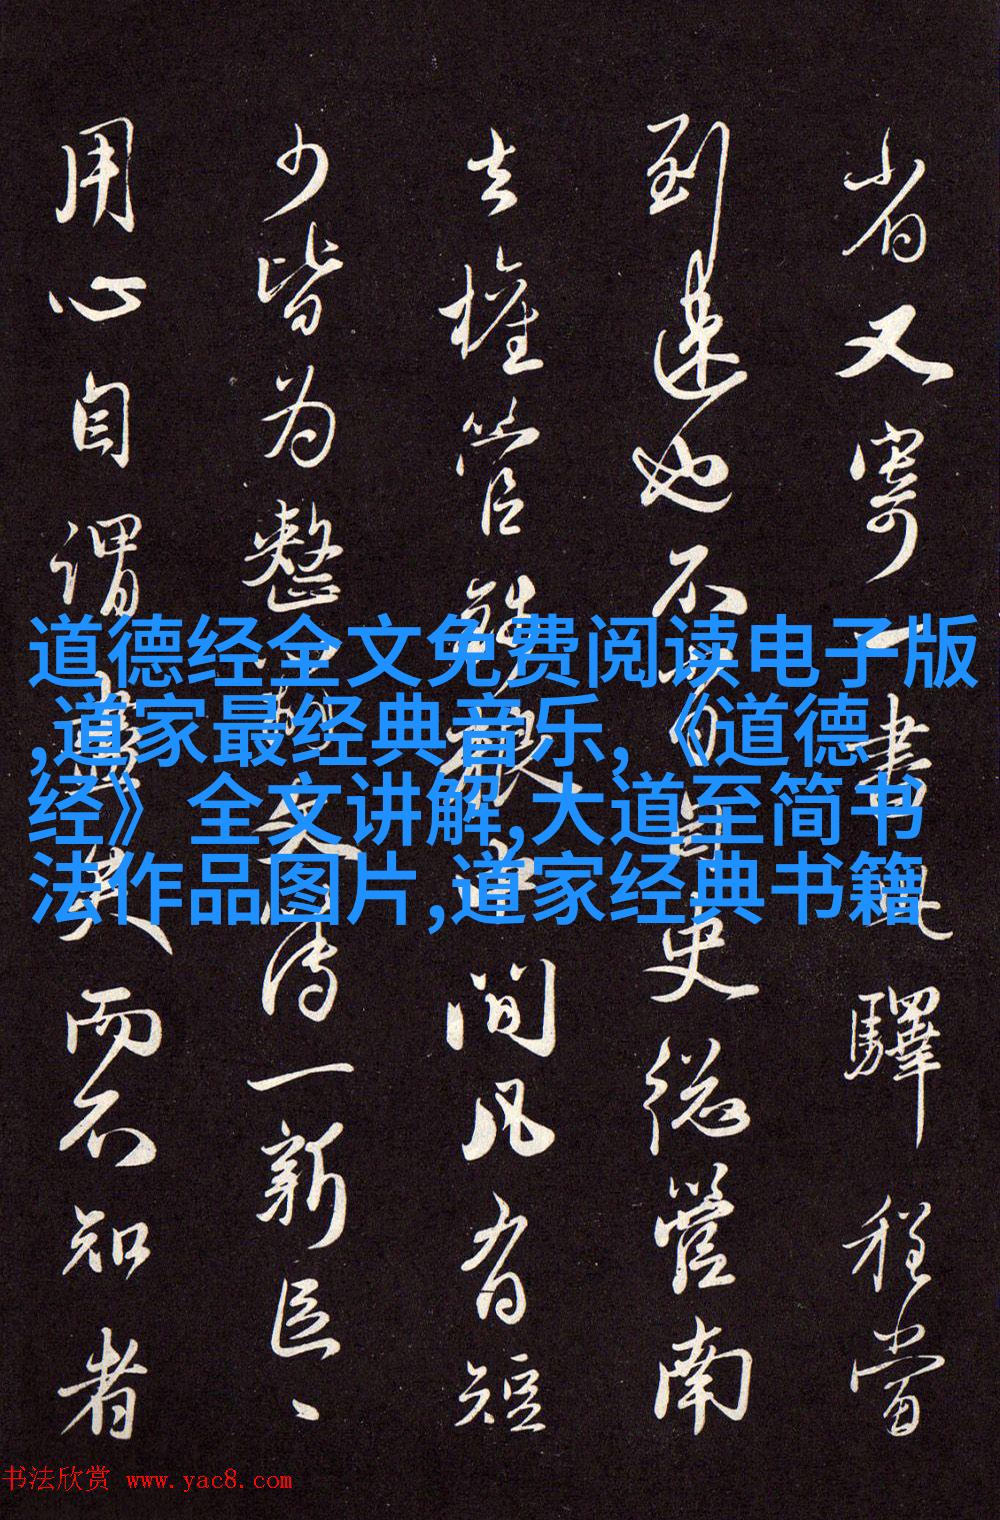 省又寄一書驛程當
到速也不自史總管南
去權管中間凡有短
少皆為整文傳一新
用心自謂盡矣而不知者
道德经全文免费阅读电子版
,道家最经典音乐,《道德
经》全文讲解,大道至简书
法作品图片,道家经典书籍
书法欣赏 www.yac8.com